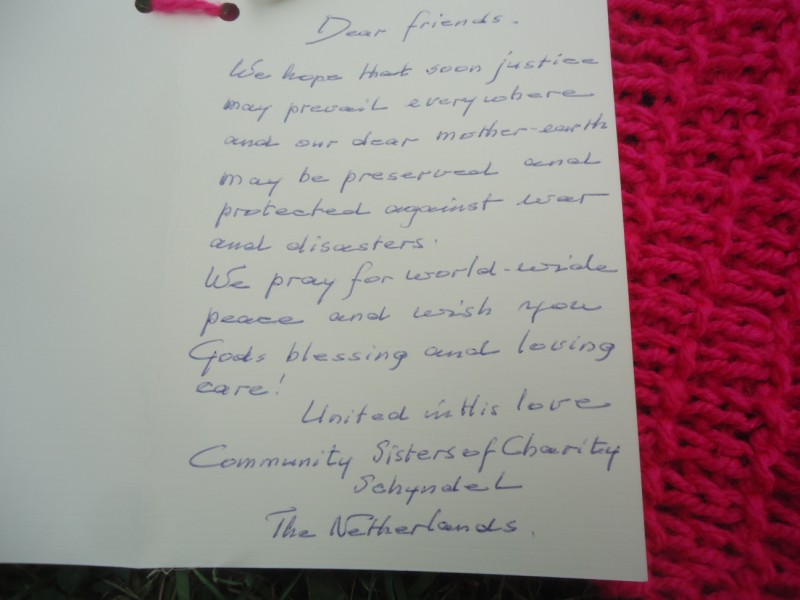 Dear friends.
We hope that soon justice
may prevail everywhere
and our dear mother-earth
may be preserved and
protected against war
and disasters.
We pray for world-wide
peace and wish you
Gods blessing and loving
care!
United in His love
Community Sisters of Charity
Schyndel
The Netherlands.